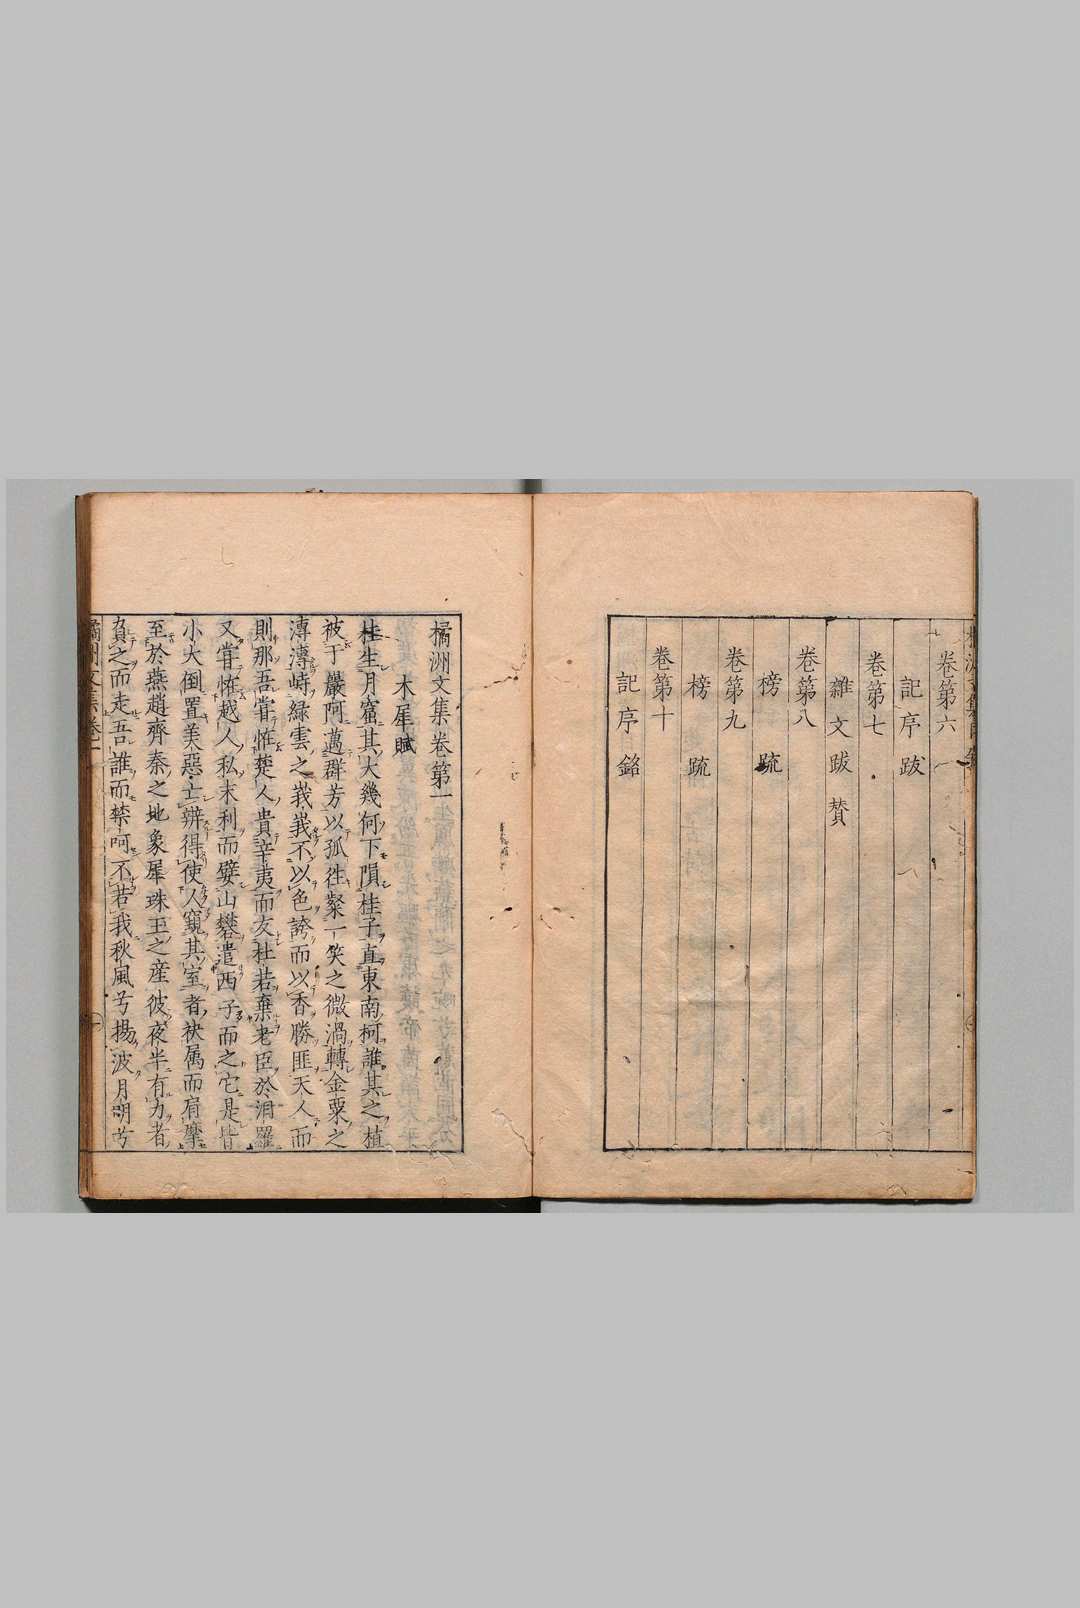 卷第六
記序跋
卷第七
雜文跋賛
卷第八
榜疏
卷第九
榜疏
卷第十
記序銘
橘洲文集卷第一
木犀賦
桂生月窟其大幾何下隕桂子直東南柯誰其之植
被于巖阿邁群芳以孤往粲一笑之微渦轉金粟之
漙漙峙綠雲之峩峩不以色誇而以香勝匪天人而
則那吾嘗恠楚人貴辛夷而友杜若棄老臣於泪羅
又嘗恠越人私末利而嬖山礬遣西子而之它是皆
小大倒置美惡亡辨得使人窺其室者袂属而肩摩
至於燕趙齊秦之地象犀珠玉之產彼夜半有力者
負之而走吾誰而禁呵不若我秋風兮揚波月明兮
橘洲文集卷一